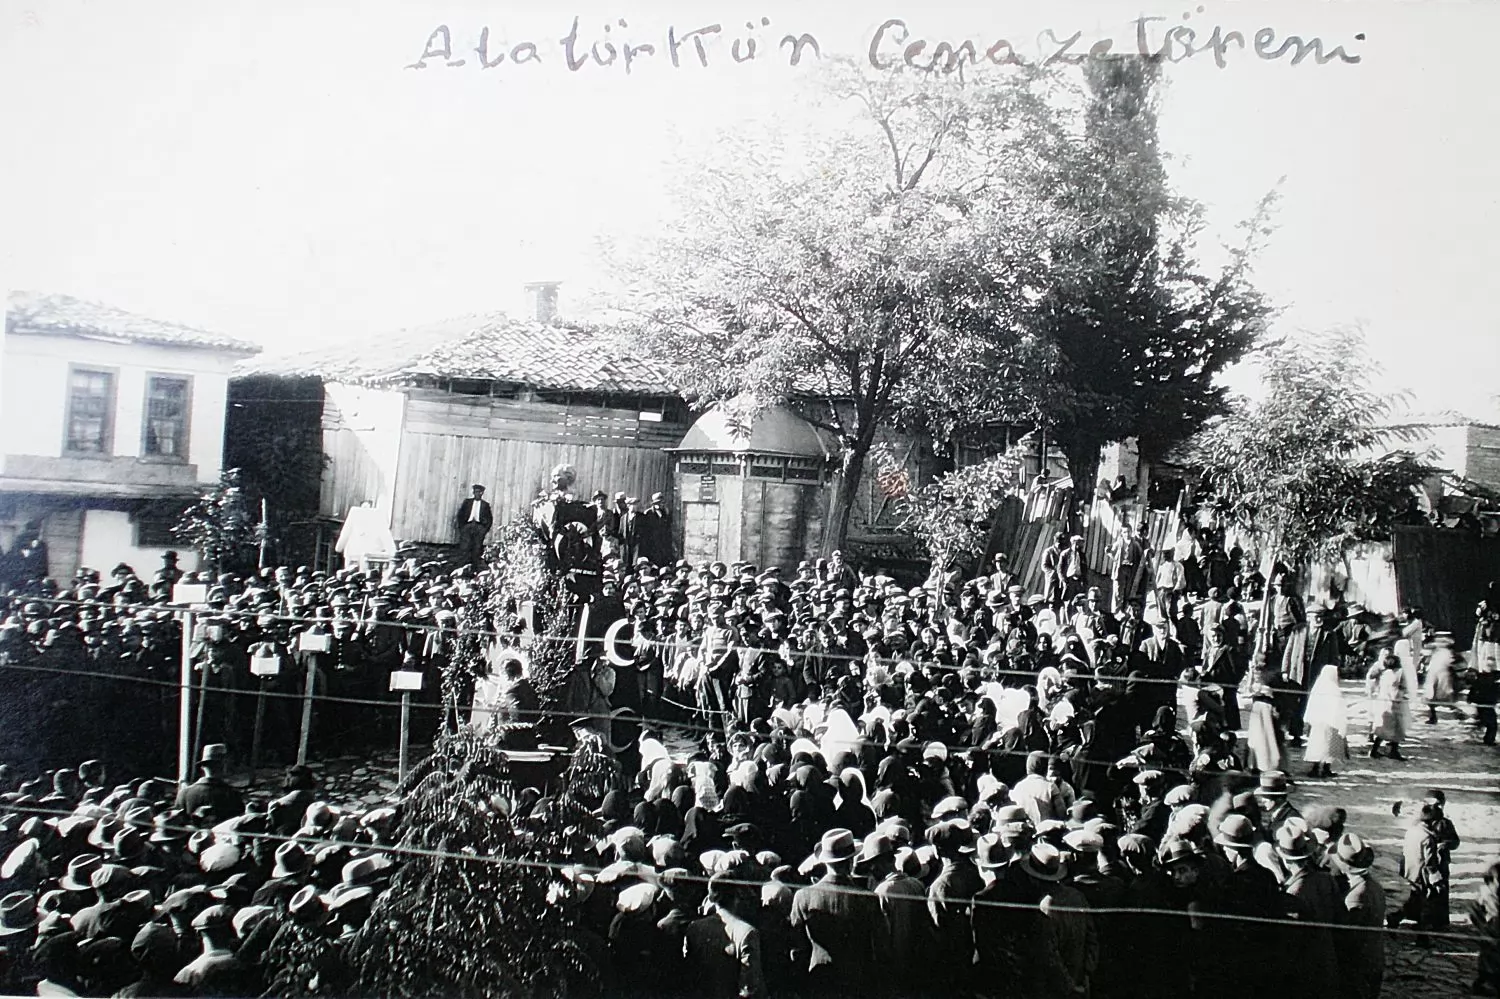 Atatürkün Cenazetöreni